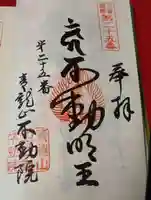 奉拝
第二十五番
不動明王
第二十五番
龍山 不動院